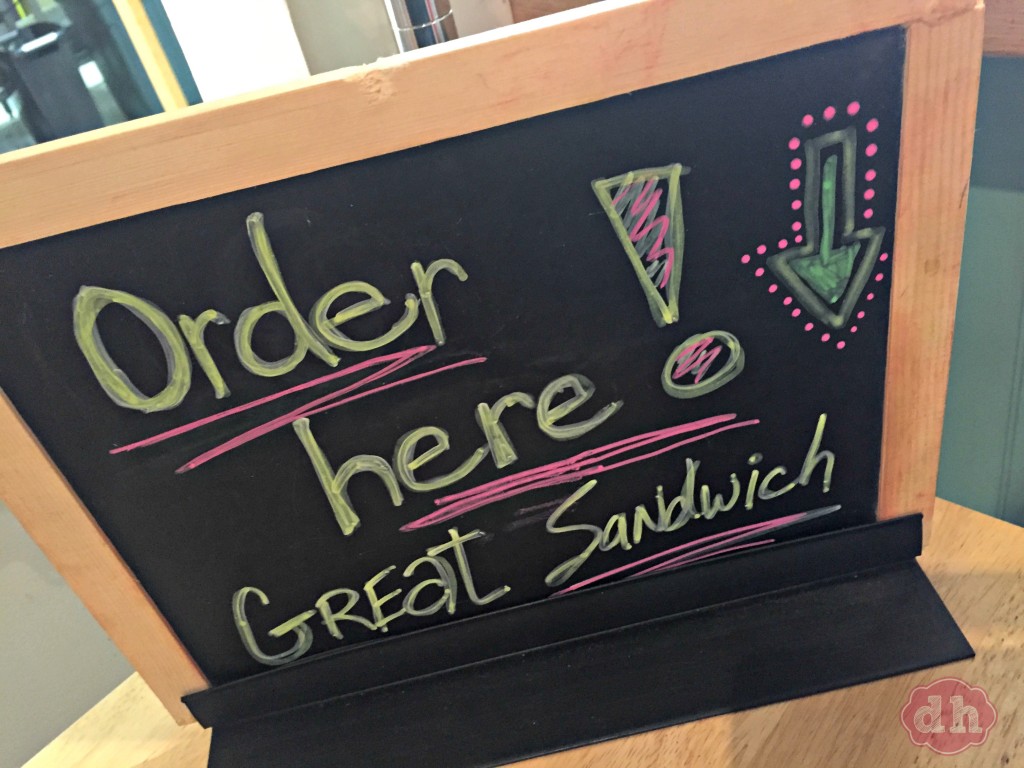 Order
here!
GREat Sandwich
dh